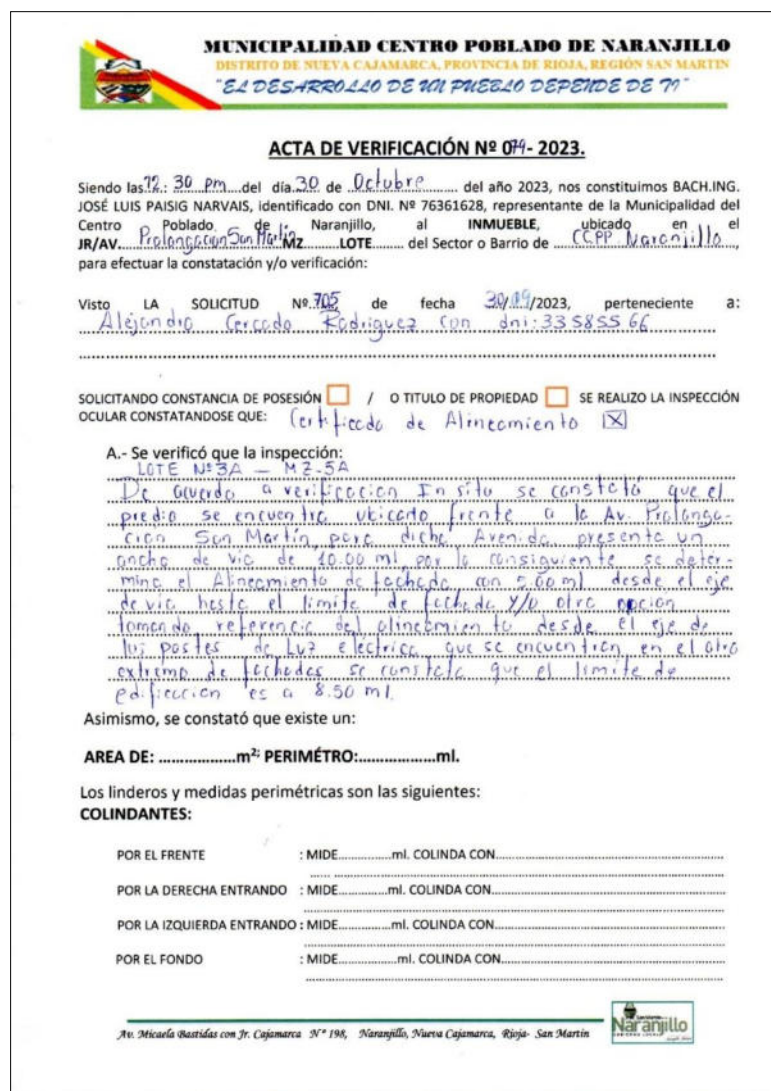 MUNICIPALIDAD CENTRO POBLADO DE NARANJILLO
DISTRITO DE NUEVA CAJAMARCA, PROVINCIA DE RIOJA, REGIÓN SAN MARTIN
"EL DESARROLLO DE UN PUEBLO DEPENDE DE TI"
ACTA DE VERIFICACIÓN Nº 079- 2023.
Siendo las 12: 30 pm del día 30 de Octubre del año 2023, nos constituimos BACH.ING.
JOSÉ LUIS PAISIG NARVAIS, identificado con DNI. Nº 76361628, representante de la Municipalidad del
Centro Poblado de Naranjillo, al INMUEBLE, ubicado en el
JR/AV. Prolongacion San Martin MZ........LOTE........ del Sector o Barrio de CCPP Naranjillo,
para efectuar la constatación y/o verificación:
Visto LA SOLICITUD Nº 705 de fecha 30/ /2023, perteneciente a:
Alejandro Cercado Rodriguez con dni: 33585566
SOLICITANDO CONSTANCIA DE POSESIÓN / O TITULO DE PROPIEDAD SE REALIZO LA INSPECCIÓN
OCULAR CONSTATANDOSE QUE: Certificado de Alineamiento X
A.- Se verificó que la inspección:
LOTE Nº 3A — MZ-5A
De acuerdo a verificacion In situ se constató que el
predio se encuentra ubicado frente a la Av. Prolonga-
cion San Martín, para dicha Avenida presenta un
ancho de via de 10.00 ml, por lo consiguiente se deter-
mina el Alineamiento de fachada con 5.00 ml desde el eje
de via hasta el limite de fachada Y/o otra opcion
tomando referencia del alineamiento desde el eje de
los postes de Luz electrica que se encuentran en el otro
extremo de fachadas se constata que el limite de
edificacion es a 8.50 ml.
Asimismo, se constató que existe un:
AREA DE: ..................m²; PERIMÉTRO:..................ml.
Los linderos y medidas perimétricas son las siguientes:
COLINDANTES:
POR EL FRENTE : MIDE................ml. COLINDA CON................
POR LA DERECHA ENTRANDO : MIDE................ml. COLINDA CON................
POR LA IZQUIERDA ENTRANDO : MIDE................ml. COLINDA CON................
POR EL FONDO : MIDE................ml. COLINDA CON................
Av. Micaela Bastidas con Jr. Cajamarca Nº 198, Naranjillo, Nueva Cajamarca, Rioja- San Martin
Naranjillo